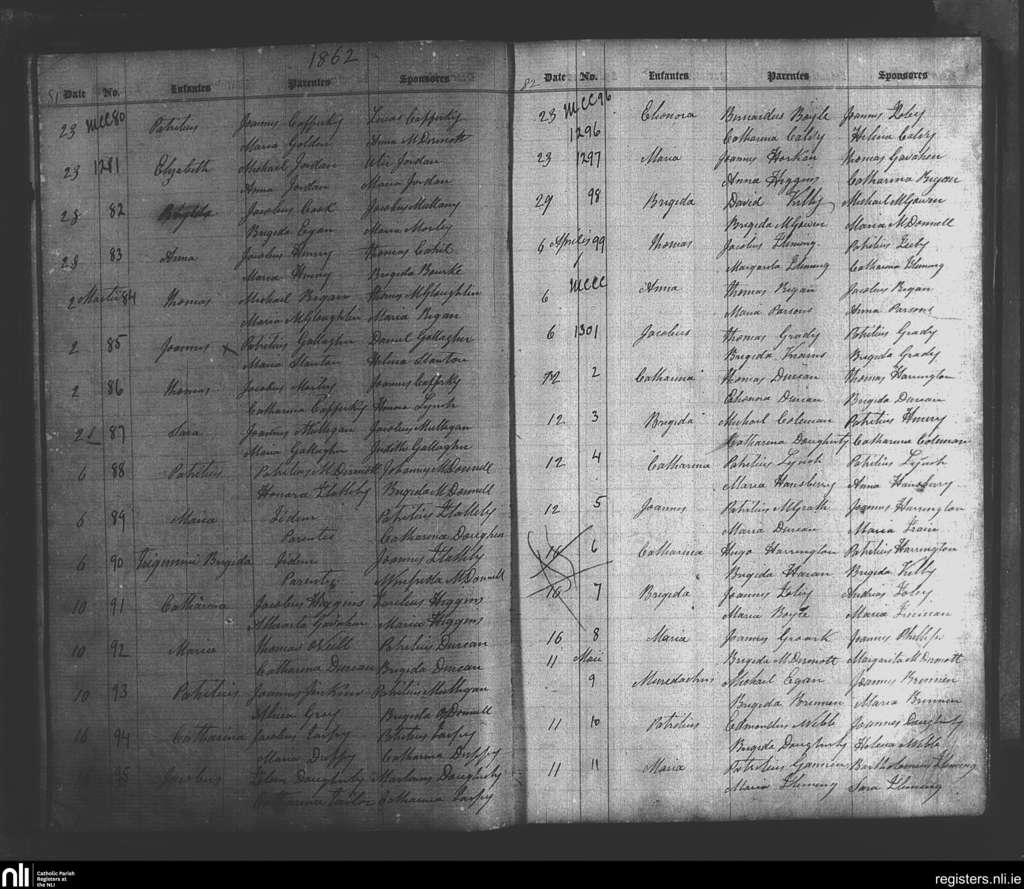 1862
81 Date No. Infantes Parentes Sponsores
23 MCC80 Patritius Joannes Cafferky Lucas Cafferky
Maria Golden Anna McDermott
23 1281 Elizabeth Michael Jordan Jordan
Anna Jordan Maria Jordan
28 82 Jacobus Cook Jacobus Mullany
Brigida Egan Maria Morley
28 83 Anna Jacobus Henry Thomas Cahil
Maria Henry Brigida Bourke
2 Martii 84 Thomas Michael Regan Thomas McGloughlin
Maria McGloughlin Maria Regan
2 85 Joannes x Patritius Gallagher Daniel Gallagher
Maria Stanton Helena Stanton
2 86 Thomas Jacobus Morley Joannes Cafferky
Catharina Cafferky Honora Lynch
2 87 Sara Joannes Mullegan Jacobus Mullegan
Maria Gallagher Judith Gallagher
6 88 Patritius Patritius McDonnell Johannes McDonnell
Honora Flatteby Brigida McDonnell
6 89 Maria Iidem Patritius Flatteby
Parentes Catharina
6 90 Brigida Iidem Joannes Flatteby
Parentes McDonnell
10 91 Catharina Jacobus Higgins Higgins
Gavahan Maria Higgins
10 92 Maria Thomas ONeill Patritius Durcan
Catharina Durcan Brigida Durcan
10 93 Patritius Joannes Jenkins Patritius Mulligan
Gray Brigida McDonnell
16 94 Catharina Jacobus Patritius
Maria Duffy Catharina Duffy
95 Jacobus Daugherty Martinus Daugherty
Catharina Taylor Catharina
82 Date No. Infantes Parentes Sponsores
23 MCC96 Elenora Bernardus Boyle Joannes Foley
1296 Catharina Caley Helena Caley
23 1297 Maria Joannes Horkan Thomas Gavahan
Anna Higgins Catharina
29 98 Brigida David Kilby Michael McGowen
Brigida McGowen Maria McDonnell
6 Aprilis 99 Thomas Jacobus Fleming Patritius
Margarita Fleming Catharina Fleming
6 MCCC Anna Thomas Regan Jacobus Regan
Maria Parsons Anna Parsons
6 1301 Jacobus Thomas Grady Patritius Grady
Brigida Brigida Grady
2 Catharina Thomas Durcan Thomas Harrington
Elenora Durcan Brigida Durcan
12 3 Brigida Michael Coleman Patritius Henery
Catharina Daugherty Catharina Coleman
12 4 Catharina Patritius Lynch Patritius Lynch
Maria Hansberry Anna Hansberry
12 5 Joannes Patritius McGrath Joannes Harrington
Maria Durcan Maria
6 Catharina Hugo Harrington Patritius Harrington
Brigida Haran Brigida Kilby
16 7 Brigida Joannes Foley Andreas Foley
Maria Boyle Maria
16 8 Maria Joannes Groark Joannes Phillips
11 Maii Brigida McDermott Margarita McDermott
9 Muredachus Michael Egan Joannes Brennen
Brigida Brennen Maria Brennen
11 10 Patritius Edmundus Webb Joannes Daugherty
Brigida Daugherty Helena Webb
11 11 Maria Patritius Bartholomeus Fleming
Maria Fleming Sara Fleming
nli Catholic Parish
Registers at
the NLI
registers.nli.ie